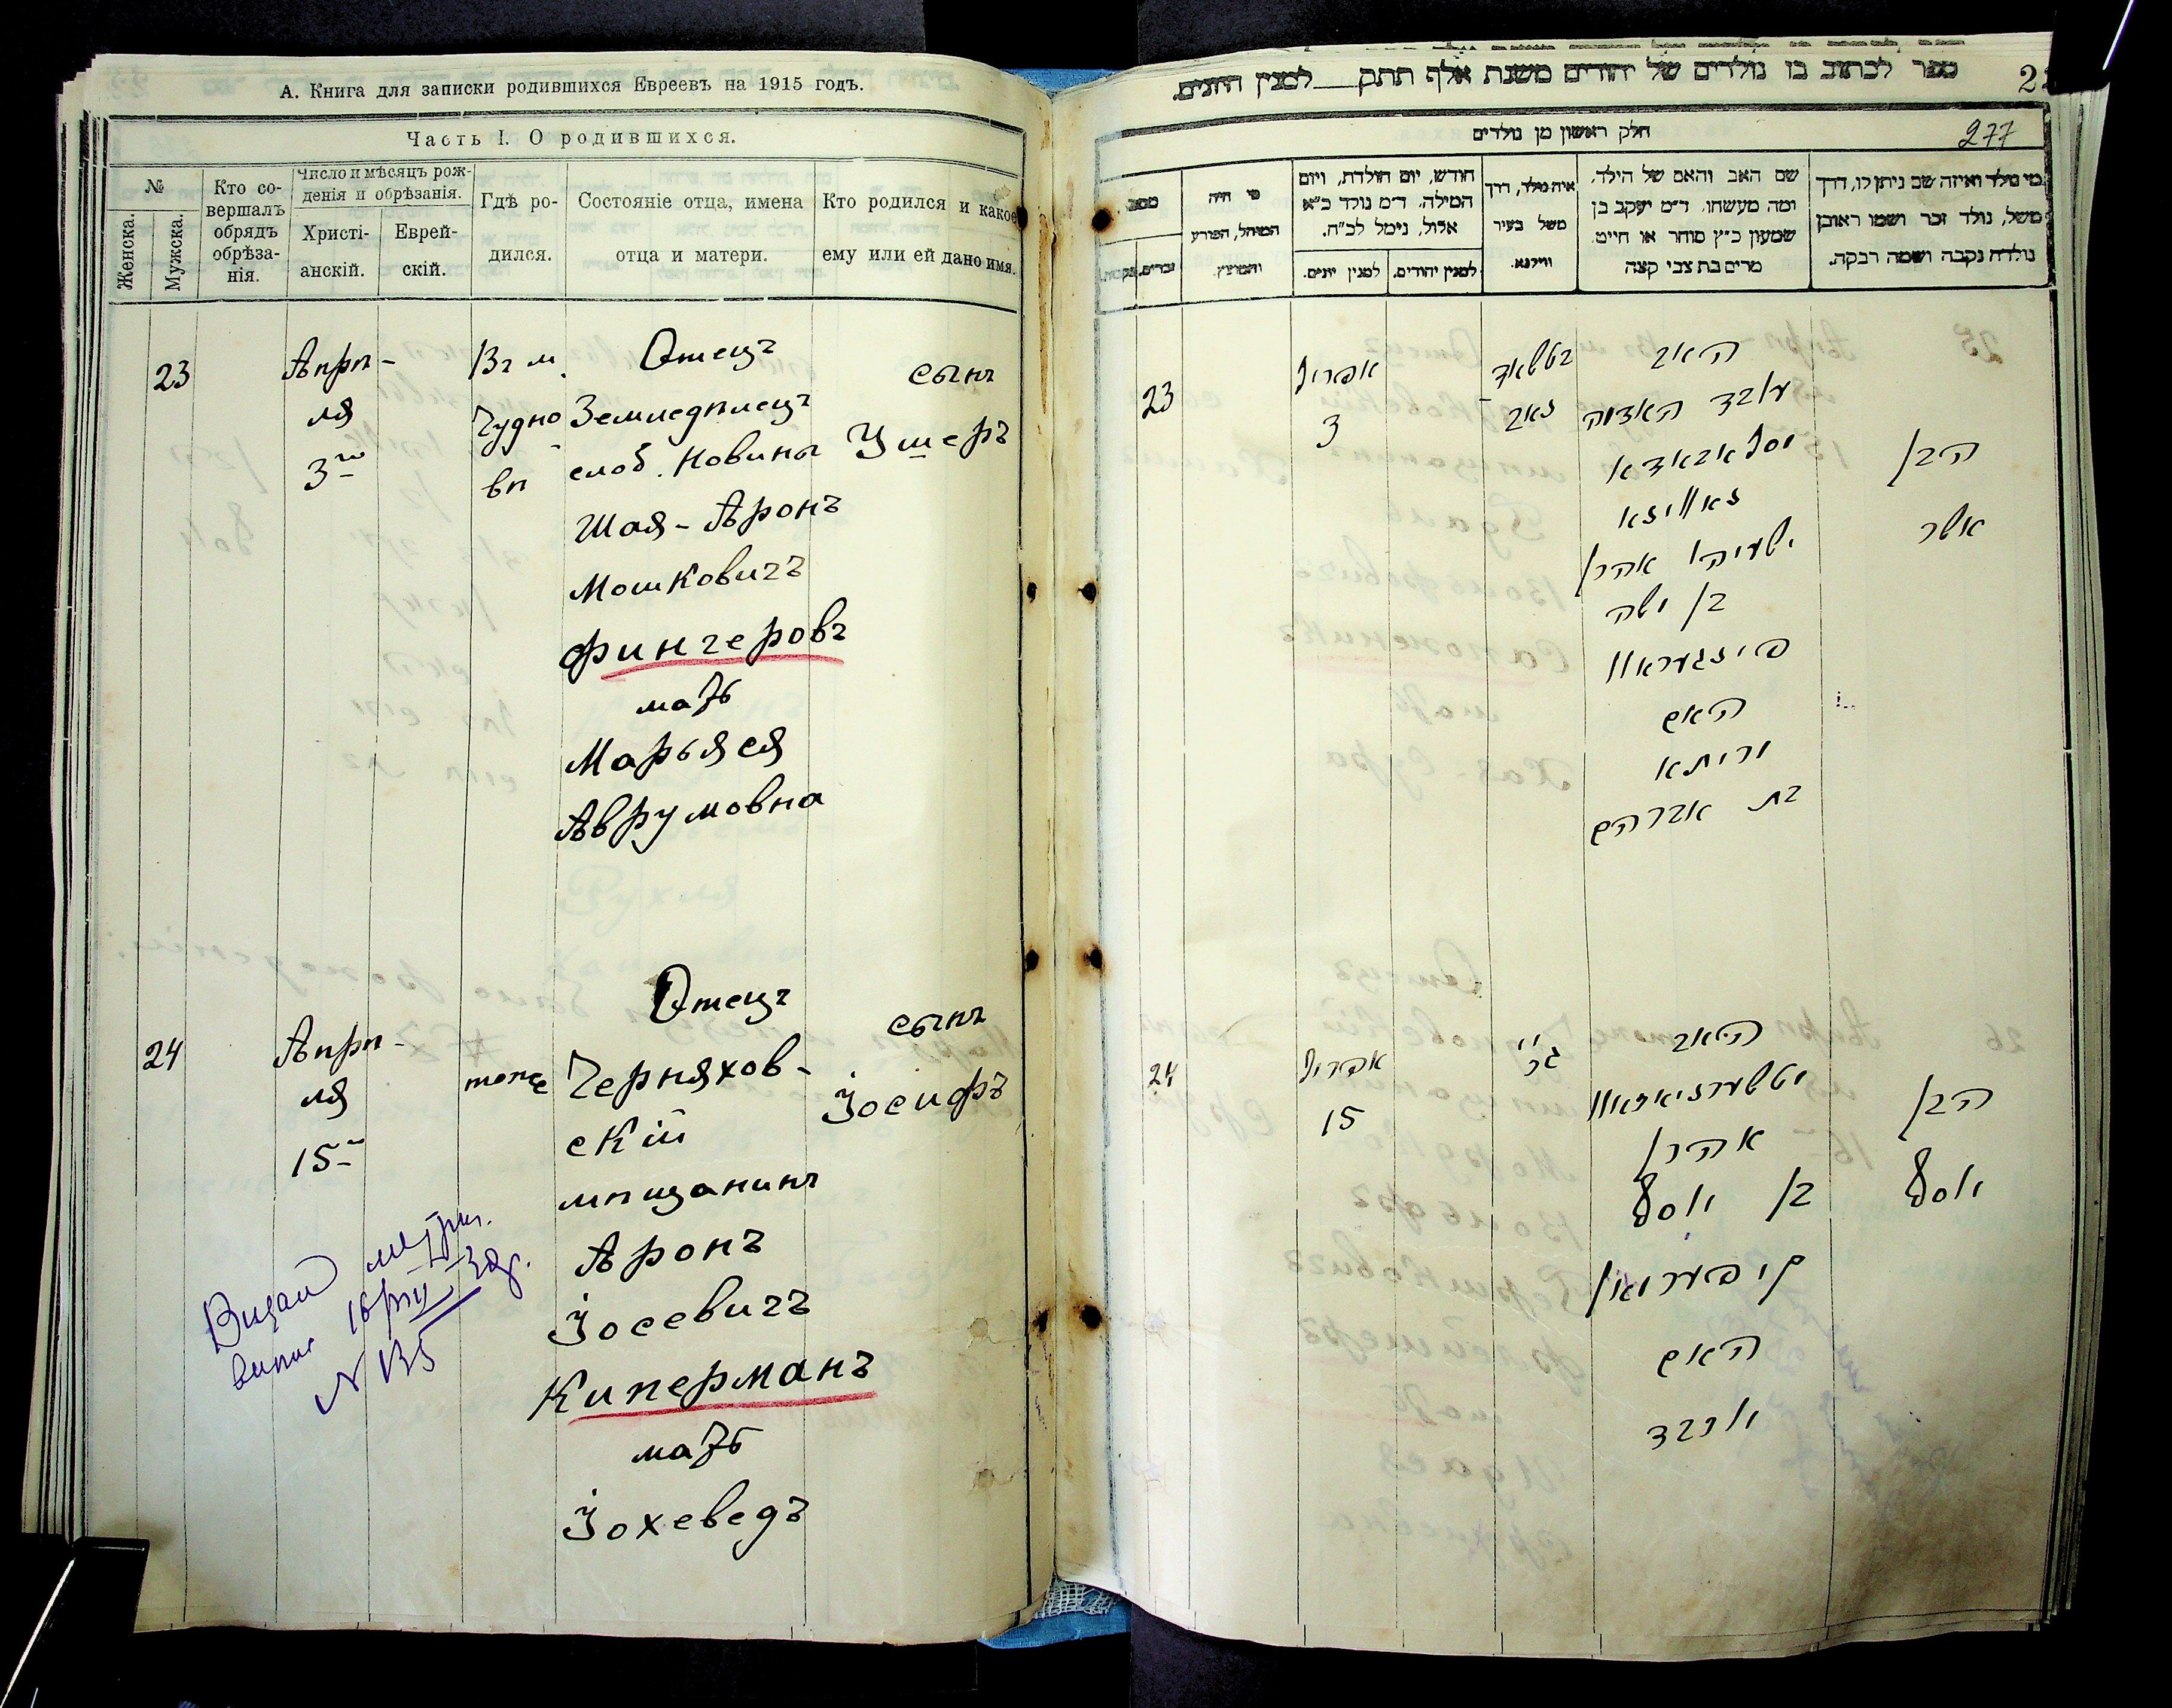 А. Книга для записки родившихся Евреевъ на 1915 годъ.
Часть I. О родившихся.
№
Женска.
Мужска.
Кто со-
вершалъ
обрядъ
обрѣза-
нія.
Число и мѣсяцъ рож-
денія и обрѣзанія.
Христі-
анскій.
Еврей-
скій.
Гдѣ ро-
дился.
Состояніе отца, имена
отца и матери.
Кто родился и какое
ему или ей дано имя.
23
Апрѣ-
ля
3го
Въ м.
Чудно
вѣ
Отецъ
Земледѣлецъ
слоб. Новины
Шая-Аронъ
Мошковичъ
Фингеровъ
мать
Марьяся
Аврумовна
сынъ
Ушеръ
24
Апрѣ-
ля
15
тоже
Отецъ
Черняхов-
скій
мѣщанинъ
Аронъ
Іосевичъ
Киперманъ
мать
Іохеведъ
сынъ
Іосифъ
N 135
ספר לכתוב בו נולדים של יהודים משנת אלף תתק למנין היונים.
277
חלק ראשון מן נולדים
מי נולד ואיזה שם ניתן לו, דרך
משל, נולד זכר ושמו ראובן
נולדה נקבה ושמה רבקה.
שם האב והאם של הילד,
ומה מעשהו. ד״מ יעקב בן
שמעון כ״ץ סוחר או חייט
מרים בת צבי קצה
איה נולד, דרך
משל בעיר
ווילנא.
חודש, יום הולדת, ויום
המילה. ד״מ נולד כ״א
אלול, נימל לכ״ח.
למנין יהודים.
למנין יונים.
מי היה
המוהל, הפורע
והמוצץ.
מספר
זכרים.
נקבות.
23
אפריל
3
האב
עובד האדמה
ישעיהו אהרן
בן משה
פינגעראוו
האם
בת אברהם
הבן
אשר
24
אפריל
15
האב
אהרן
בן יוסף
קיפערמאן
האם
יוכבד
הבן
יוסף